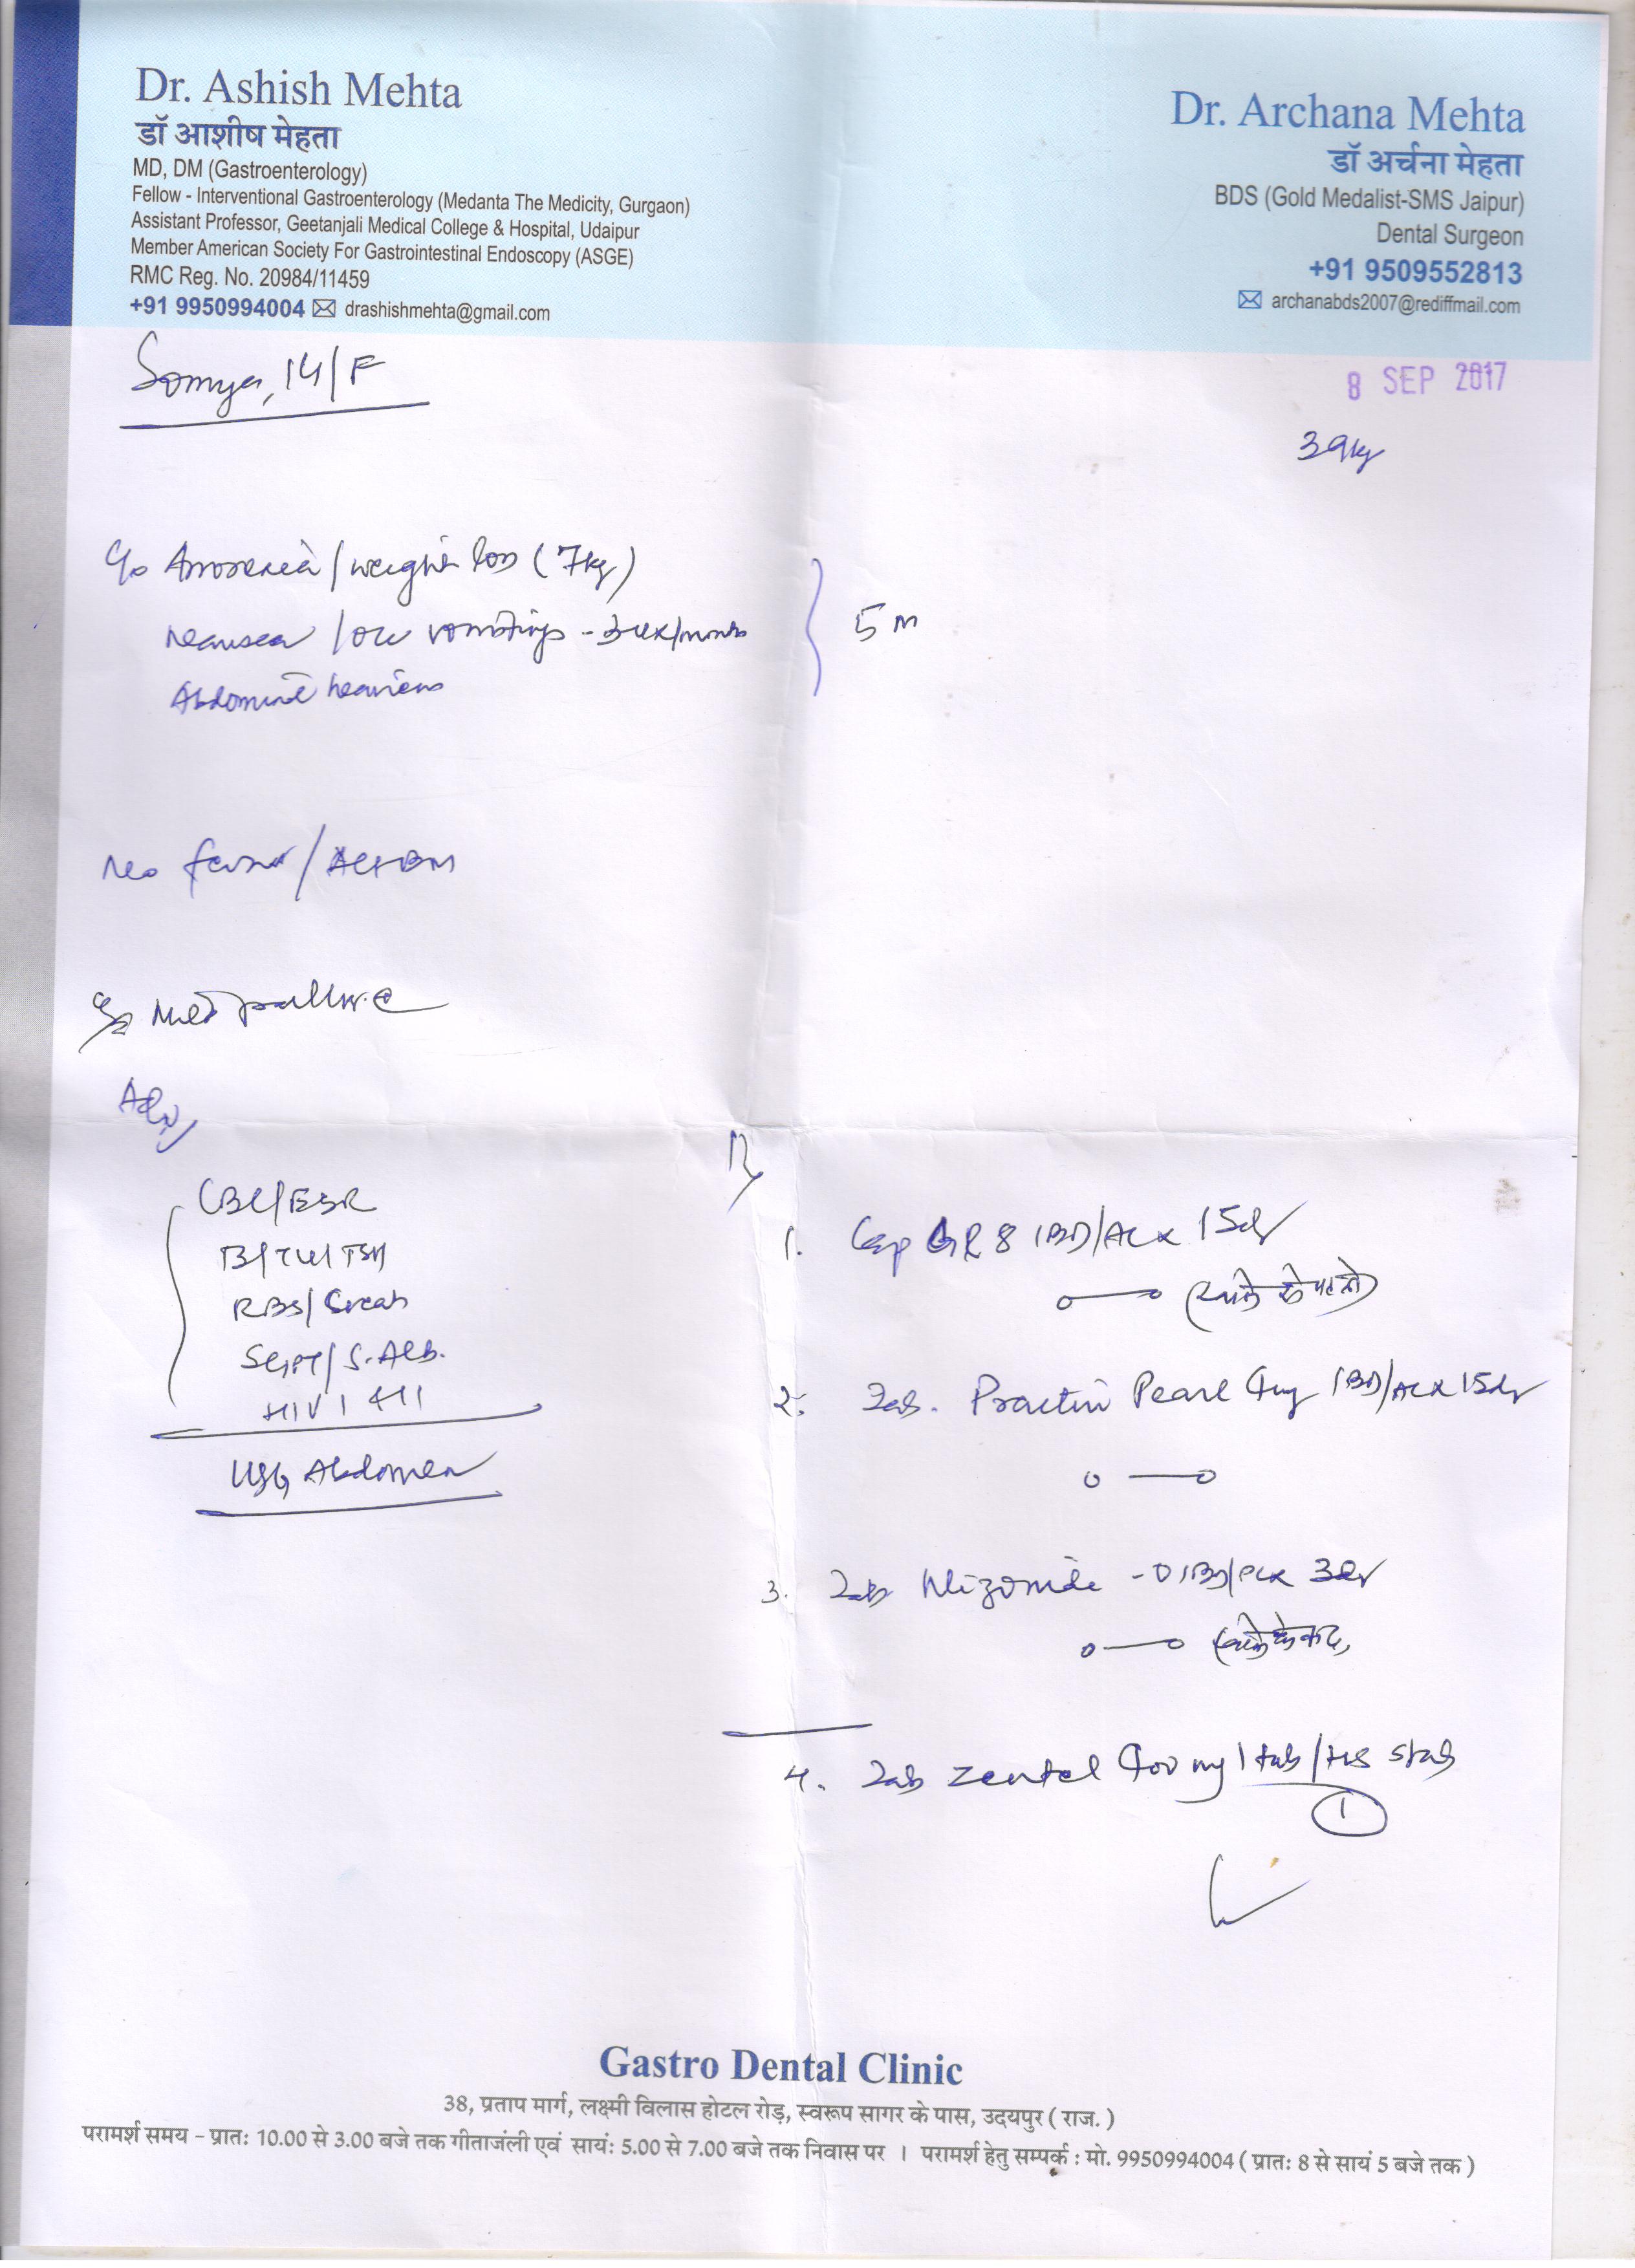 Dr. Ashish Mehta
डॉ आशीष मेहता
MD, DM (Gastroenterology)
Fellow - Interventional Gastroenterology (Medanta The Medicity, Gurgaon)
Assistant Professor, Geetanjali Medical College & Hospital, Udaipur
Member American Society For Gastrointestinal Endoscopy (ASGE)
RMC Reg. No. 20984/11459
+91 9950994004 drashishmehta@gmail.com
Dr. Archana Mehta
डॉ अर्चना मेहता
BDS (Gold Medalist-SMS Jaipur)
Dental Surgeon
+91 9509552813
archanabds2007@rediffmail.com
Somya, 14/F
8 SEP 2017
39kg
C/o Anorexia / weight loss (7kg)
nausea / occ vomitings -
Abdominal heaviness
5 m
No fever /
Mild pallor
Adv
CBC/ESR
RBS/ Creat
SGPT/ S. Alb.
HIV
USG Abdomen
Rx
1. Cap 8 1BD/AC x 15d
(खाने से पहले)
2. Tab. Practin Pearl 4mg 1BD/AC x 15d
3. Tab Nizonide - O 1BD/PC x 3d
(खाने के बाद)
4. Tab Zentel 400 mg 1 tab/HS stat
1
Gastro Dental Clinic
38, प्रताप मार्ग, लक्ष्मी विलास होटल रोड़, स्वरूप सागर के पास, उदयपुर ( राज. )
परामर्श समय - प्रातः 10.00 से 3.00 बजे तक गीताजंली एवं सायंः 5.00 से 7.00 बजे तक निवास पर । परामर्श हेतु सम्पर्क : मो. 9950994004 ( प्रातः 8 से सायं 5 बजे तक )